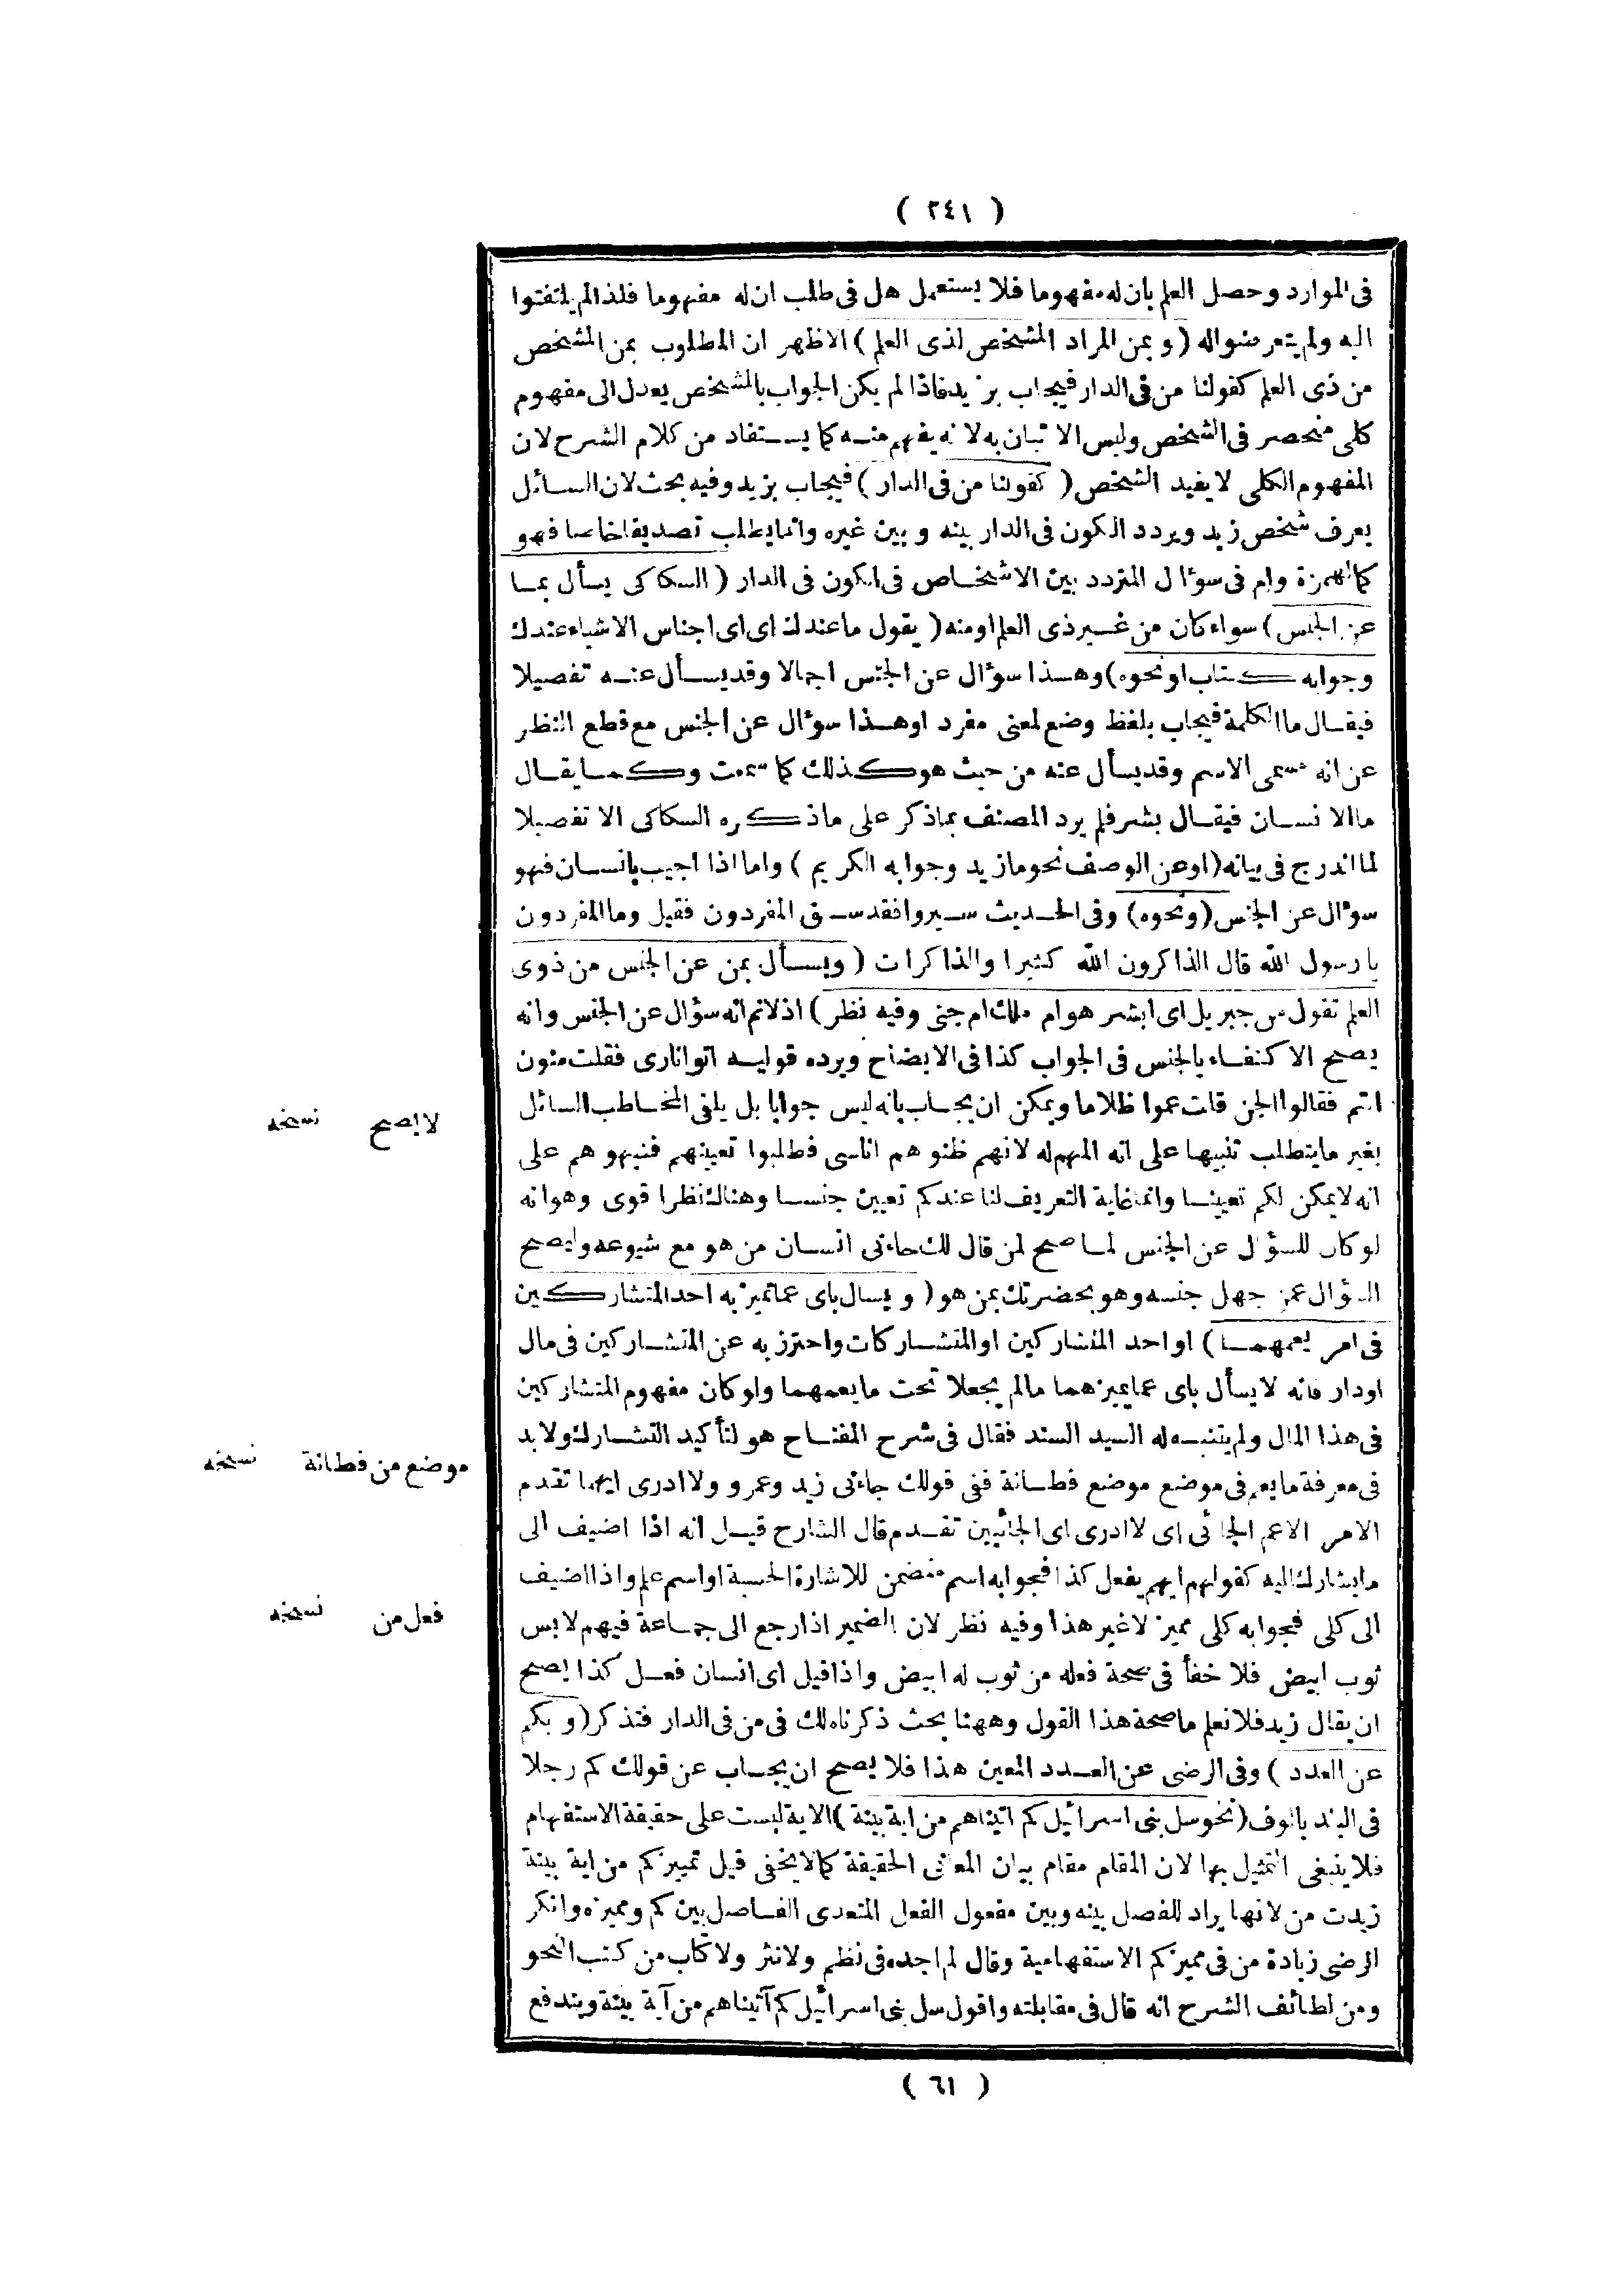 ( ٢٤١ )
فى الموارد وحصل العلم بان له مفهوما فلا يستعمل هل فى طلب ان له مفهوما فلذا لم يلتفتوا
اليه ولم يتعرضواله ( و بمن المراد المشخص لذى العلم ) الاظهر ان المطلوب بمن المشخص
من ذى العلم كقولنا من فى الدار فيجاب بزيد فاذا لم يكن الجواب بالمشخص يعدل الى مفهوم
كلى منحصر فى الشخص وليس الاتيان به لانه يفهم منه كما يستفاد من كلام الشرح لان
المفهوم الكلى لا يفيد الشخص ( كقولنا من فى الدار ) فيجاب بزيد وفيه بحث لان السائل
يعرف شخص زيد ويردد الكون فى الدار بينه و بين غيره وانما يطلب تصديقا خاصا فهو
كالهمزة وام فى سؤال المتردد بين الاشخاص فى الكون فى الدار ( السكاكى يسأل بما
عن الجنس ) سواء كان من غير ذى العلم او منه ( يقول ما عندك اى اى اجناس الاشياء عندك
وجوابه كتاب او نحوه ) وهذا سؤال عن الجنس اجمالا وقد يسأل عنه تفصيلا
فيقال ما الكلمة فيجاب بلفظ وضع لمعنى مفرد او هذا سؤال عن الجنس مع قطع النظر
عن انه مسمى الاسم وقد يسأل عنه من حيث هو كذلك كما سمعت وكما يقال
ما الانسان فيقال بشر فلم يرد المصنف بماذكر على ماذكره السكاكى الا تفصيلا
لما اندرج فى بيانه ( او عن الوصف نحو ما زيد وجوابه الكريم ) واما اذا اجيب بانسان فهو
سؤال عن الجنس ( ونحوه ) وفى الحديث سيروا فقد سبق المفردون فقيل وما المفردون
يا رسول الله قال الذاكرون الله كثيرا والذاكرات ( ويسأل بمن عن الجنس من ذوى
العلم تقول من جبريل اى ابشر هو ام ملك ام جنى وفيه نظر ) اذ لانم انه سؤال عن الجنس وانه
يصح الاكتفاء بالجنس فى الجواب كذا فى الايضاح ويرده قوليه اتوا نارى فقلت منون
انتم فقالوا الجن قلت عموا ظلاما ويمكن ان يجاب بانه ليس جوابا بل يلقى المخاطب السائل
بغير ما يتطلب تنبيها على انه المهم له لانهم ظنوهم اناسى فطلبوا تعيينهم فنبهوهم على
انه لا يمكن لكم تعيينا وانما غاية التعريف لنا عندكم تعيين جنسا وهناك نظرا قوى وهو انه
لو كان للسؤال عن الجنس لما صح لمن قال لك جاءنى انسان من هو مع شيوعه وليصح
السؤال عمن جهل جنسه وهو بحضرتك بمن هو ( و يسال باى عما تميز به احد المتشاركين
فى امر يعمهما ) او احد المتشاركين او المتشاركات واحترز به عن المتشاركين فى مال
او دار فانه لا يسأل باى عما يميزهما مالم يجعلا تحت ما يعمهما ولو كان مفهوم المتشاركين
فى هذا المال ولم يتنبه له السيد السند فقال فى شرح المفتاح هو لتأكيد التشارك ولا بد
فى معرفة ما يعم فى موضع موضع فطانة ففى قولك جاءنى زيد وعمرو ولا ادرى ايهما تقدم
الامر الاعم الجائى اى لا ادرى اى الجائيين تقدم قال الشارح قيل انه اذا اضيف الى
ما يشارك اليه كقولهم ايهم يفعل كذا فجوابه اسم متضمن للاشارة الحسية او اسم علم واذا اضيف
الى كلى فجوابه كلى مميز لا غير هذا وفيه نظر لان الضمير اذا رجع الى جماعة فيهم لابس
ثوب ابيض فلا خفأ فى صحة فعله من ثوب له ابيض واذا قيل اى انسان فعل كذا يصح
ان يقال زيد فلا نعلم ما صحة هذا القول وههنا بحث ذكرناه لك فى من فى الدار فتذكر ( و بكم
عن العدد ) وفى الرضى عن العدد المعين هذا فلا يصح ان يجاب عن قولك كم رجلا
فى البلد بالوف ( نحو سل بنى اسرائيل كم اتيناهم من اية بينة ) الاية ليست على حقيقة الاستفهام
فلا ينبغى التمثيل بها لان المقام مقام بيان المعانى الحقيقة كما لا يخفى قيل تمييزكم من اية بينة
زيدت من لانها يراد للفصل بينه وبين مفعول الفعل المتعدى الفاصل بين كم ومميزه وانكر
الرضى زيادة من فى مميزكم الاستفهامية وقال لم اجده فى نظم ولا نثر ولا كتاب من كتب النحو
ومن لطائف الشرح انه قال فى مقابلته واقول سل بنى اسرائيل كم آتيناهم من آية بينة ويندفع
لا يصح نسخه
موضع من فطانة نسخه
فعل من نسخه
( ٦١ )